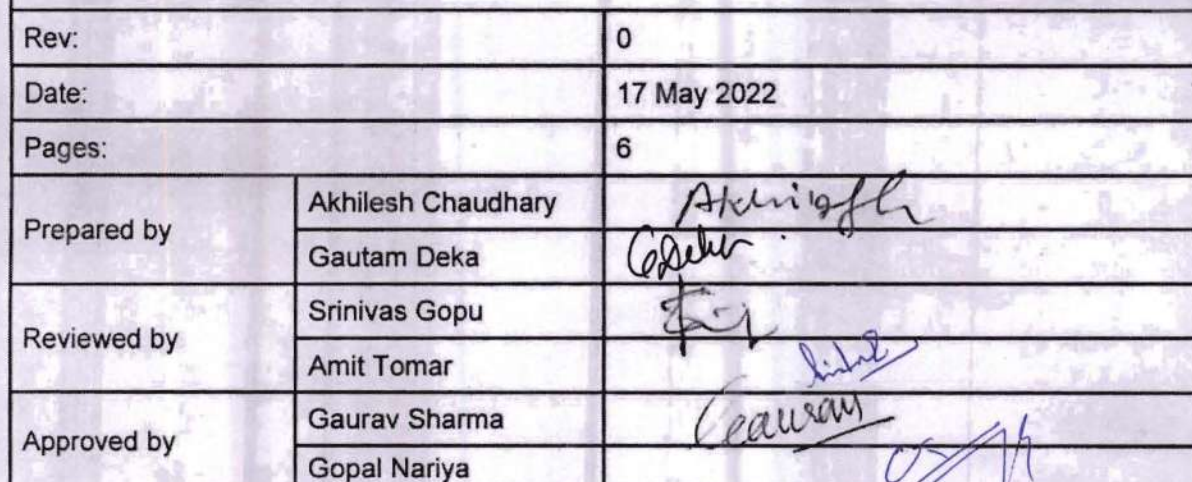 Rev: 0
Date: 17 May 2022
Pages: 6
Prepared by
Akhilesh Chaudhary
Gautam Deka
Reviewed by
Srinivas Gopu
Amit Tomar
Approved by
Gaurav Sharma Gaurav
Gopal Nariya